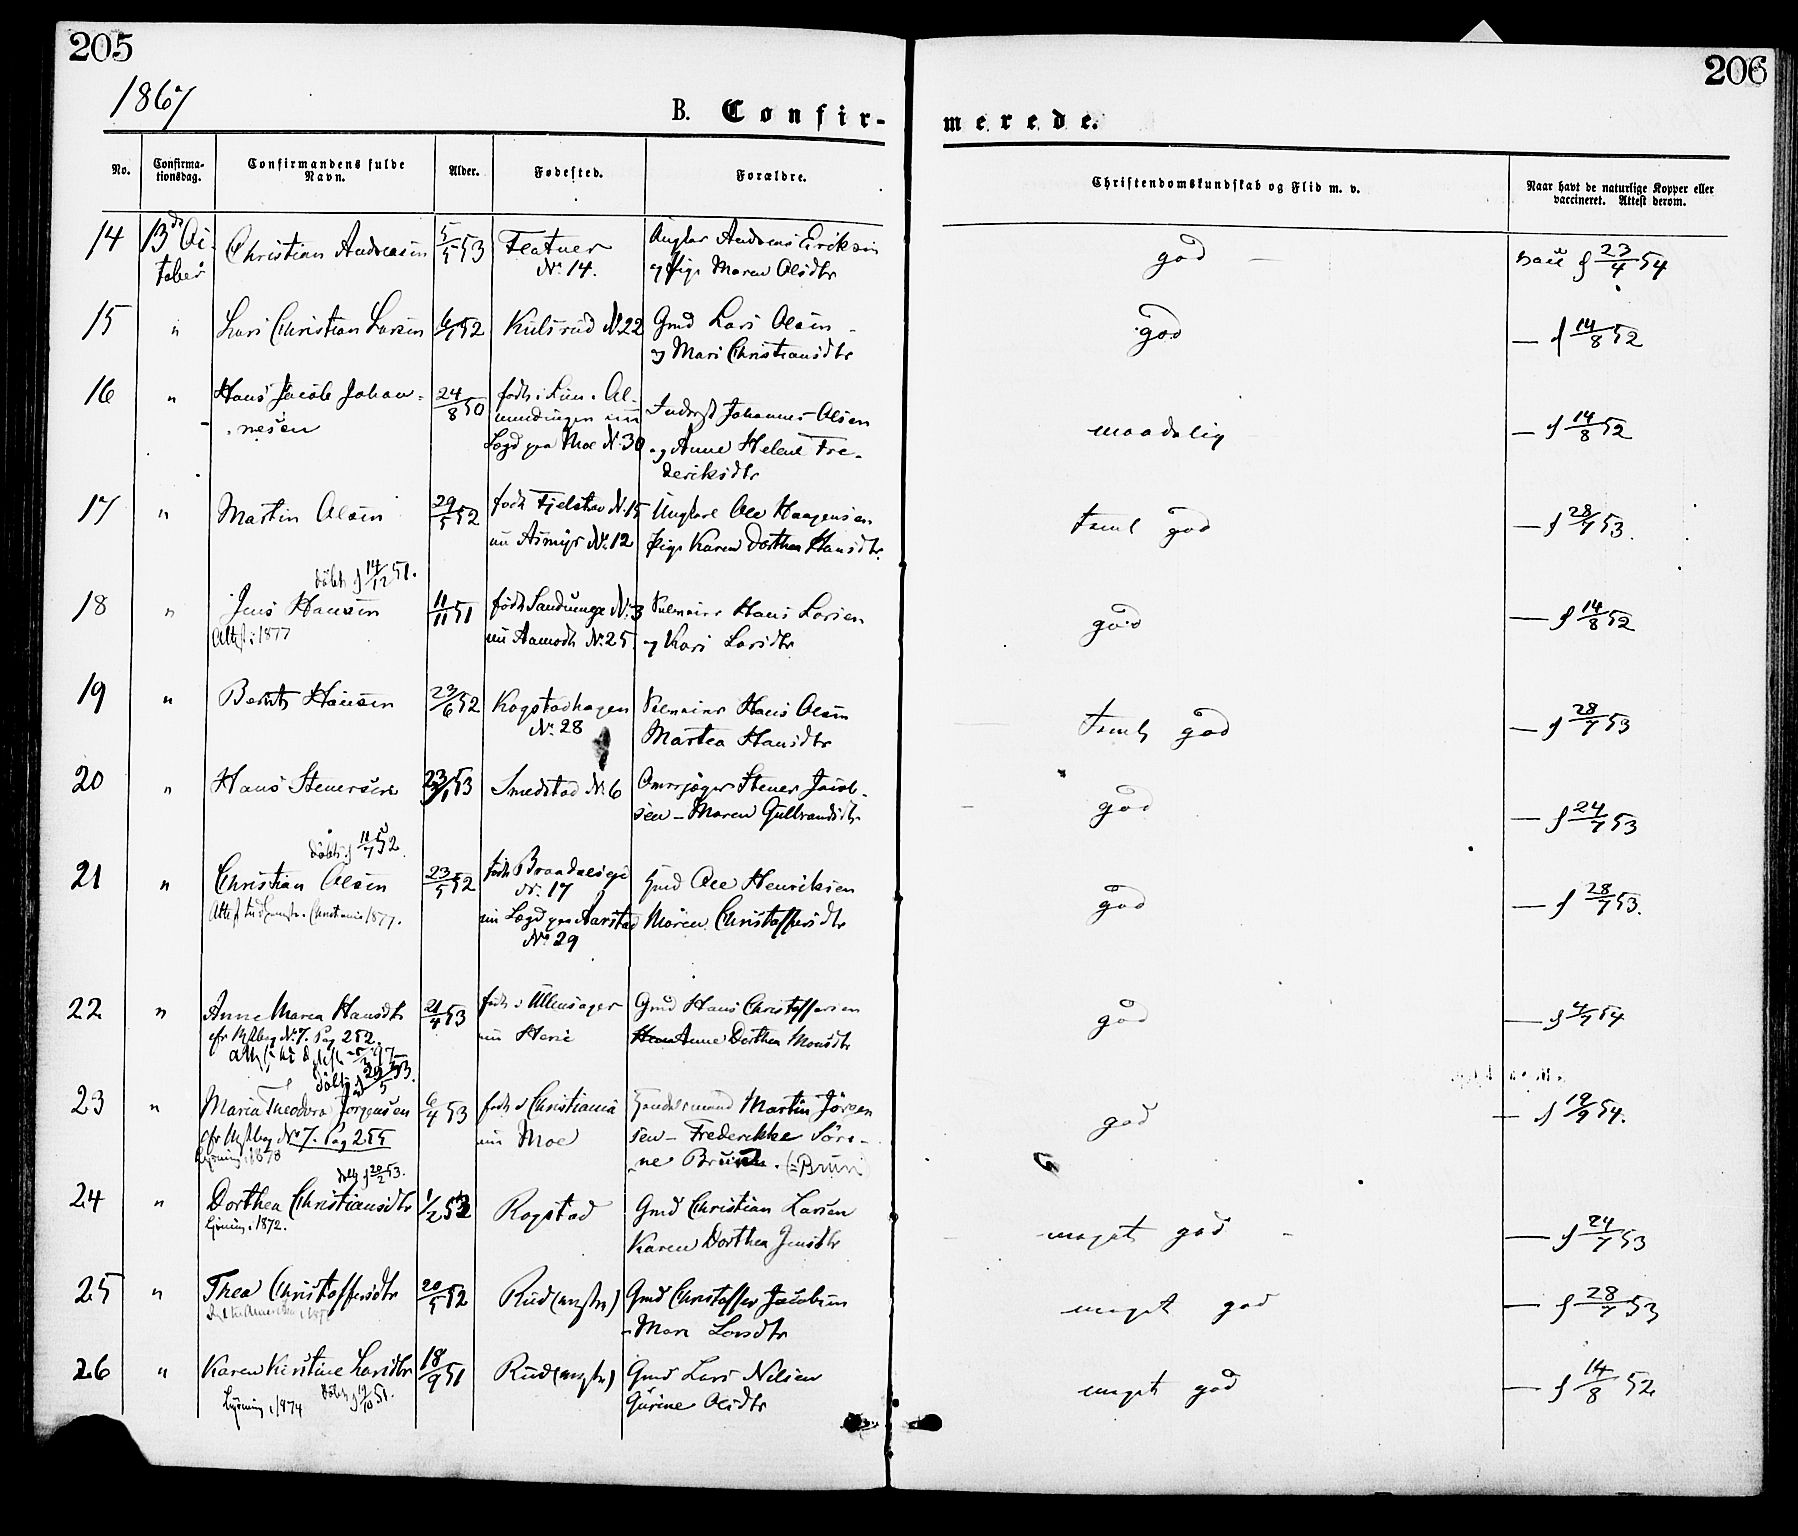 205
206
1867
B. Confir-
merede.
No.
Confirma-
tionsdag.
Confirmandens fulde
Navn.
Alder.
Fødested.
Forældre.
Christendomskundskab og Flid m. v.
Naar havt de naturlige Kopper eller
vaccineret. Attest derom.
14
Christian Andreasen
5/5 53
N: 14.
Andreas Eriksen
Maren Olsdtr
god
23/4 54
15
"
Lars Christian Larsen
6/1 52
Kulsrud N: 22
Gmd Lars Olsen
og Mari Christiansdtr
god
— f 14/8 52
16
"
Hans Jacob Johan-
nesen
24/8 50
Lægd paa Moe N: 30
Inderst Johannes Olsen
og Anne Helene Fre-
deriksdtr
maadelig
— f 14/8 52
17
"
Martin Olsen
29/5 52
født Fjelstad N: 15
nu Asmyr N: 12
Ungkarl Ole Haagensen
Pige Karen Dorthea Hansdtr
Teml god
— f 28/7 53.
døbt f 14/12 51.
18
"
Jens Hansen
Attest 1877
11/11 51
født Sandunge N: 3
nu Aamodt N: 25
Hans Larsen
og Kari Larsdtr
god
— f 14/8 52
19
"
Bernt Hansen
23/6 52
Kogstadhagen
N: 28
Hans Olsen
Martea Hansdtr
Teml god
— f 28/7 53
20
"
Hans Stenersen
23/1 53
Smedstad N: 6
Stener Jacob-
sen — Maren Gulbrandsdtr
god
— f 24/7 53
døbt f 11/7 52.
21
"
Christian Olsen
Christiania 1877.
23/5 52
født
N: 17
nu Lægd paa Aarstad
No 29
Gmd Ole Henriksen
Maren Christoffersdtr
god
— f 28/7 53.
22
"
Anne Maria Hansdtr
N: 7. Pag 252.
21/4 53
født i Ullensager
nu
Gmd Hans Christoffersen
Anne Dorthea Monsdtr
god
54
døbt f 29/5 53.
23
"
Maria Theodora Jørgensen
No 7. Pag 255
1878
6/4 53
født i Christiania
nu Moe
Handelsmand Martin Jörgen
sen — Frederikke Søri-
ne Bruun. (=Brun)
god
— f 19/9 54.
f 20/2 53.
24
"
Dorthea Christiansdtr
lysning i 1872.
1/2 53
Rogstad
Gmd Christian Larsen
Karen Dorthea Jensdtr
meget god
— f 24/7 53
25
"
Thea Christoffersdtr
20/5 52
Rud
Gmd Christoffer Jacobsen
Mari Larsdtr
meget god
— f 28/7 53
26
"
Karen Kirstine Larsdtr
lysning i 1874
døbt f 51.
18/9 51
Rud
Gmd Lars Nilsen
Gurine Olsdtr
meget god
— f 14/8 52